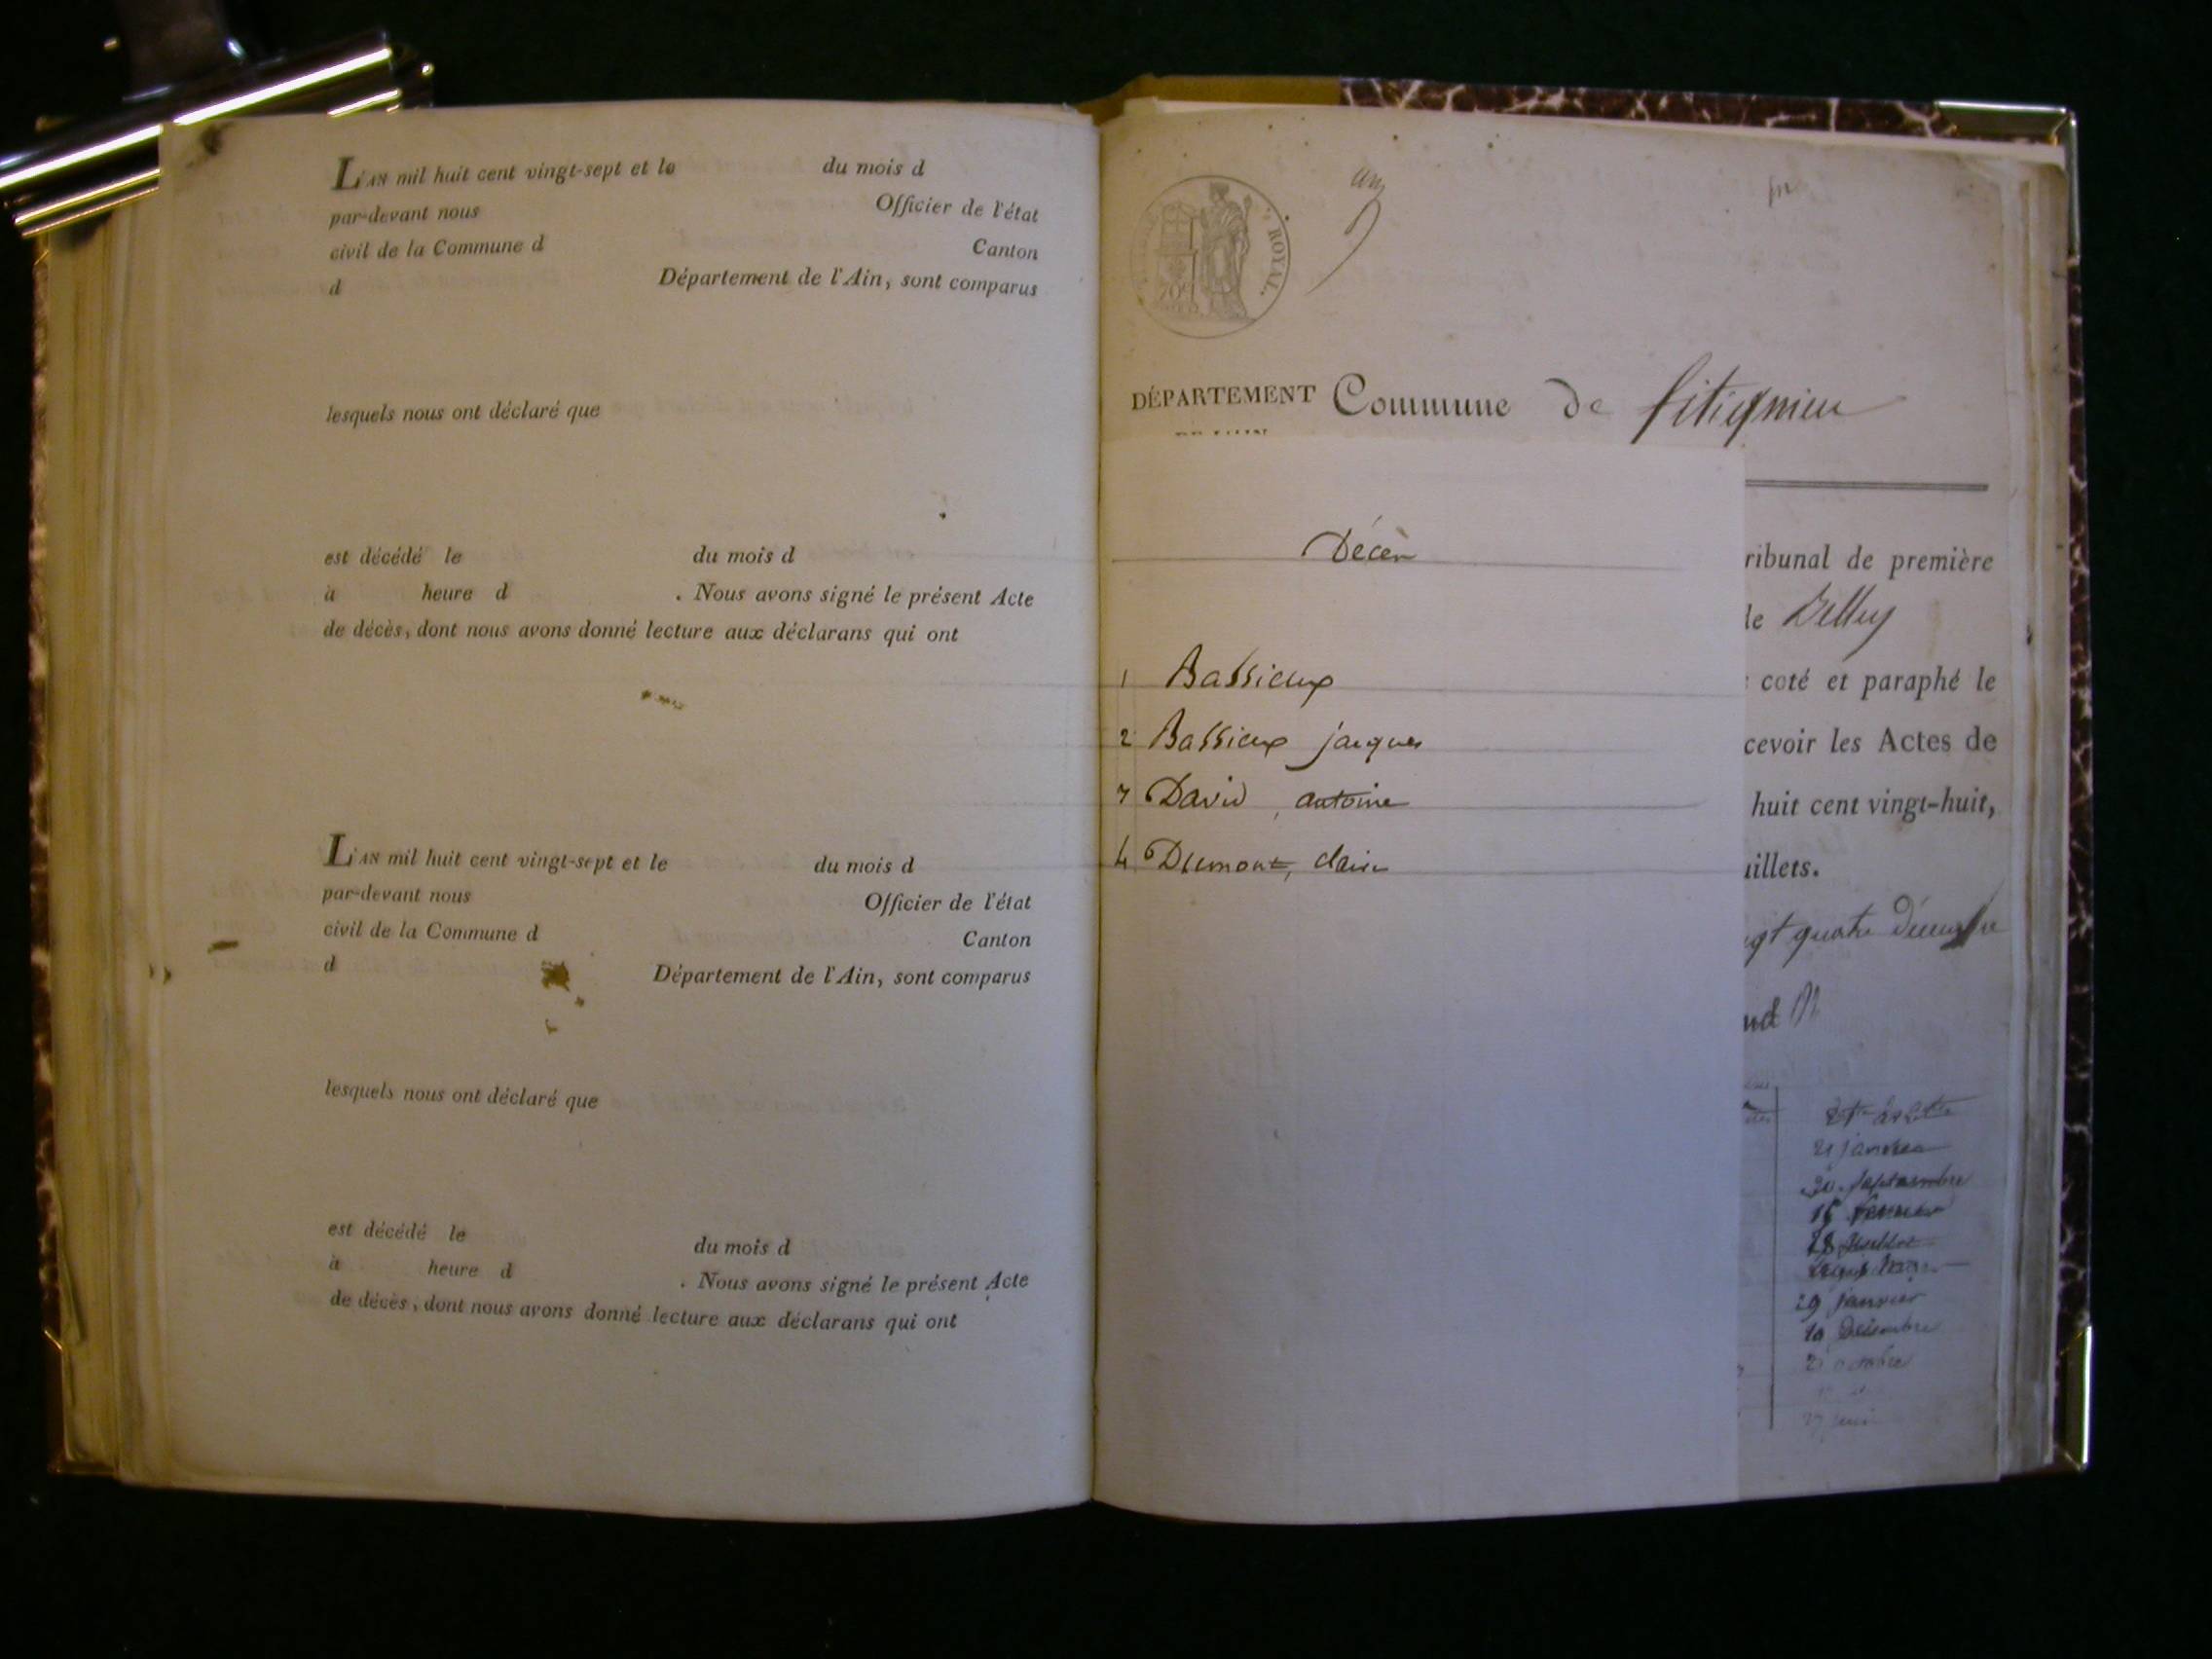 L'AN mil huit cent vingt-sept et le du mois d
par-devant nous Officier de l'état
civil de la Commune d Canton
d Département de l'Ain, sont comparus
lesquels nous ont déclaré que
est décédé le du mois d
à heure d . Nous avons signé le présent Acte
de décès, dont nous avons donné lecture aux déclarans qui ont
L'AN mil huit cent vingt-sept et le du mois d
par-devant nous Officier de l'état
civil de la Commune d Canton
d Département de l'Ain, sont comparus
lesquels nous ont déclaré que
est décédé le du mois d
à heure d . Nous avons signé le présent Acte
de décès, dont nous avons donné lecture aux déclarans qui ont
ROYAL.
DÉPARTEMENT Commune de fitignieu
Décès
1 Bassieux
2 Bassieux jacques
3 David, antoine
4 Dumont, claire
ribunal de première
le Belley
coté et paraphé le
cevoir les Actes de
huit cent vingt-huit,
uillets.
gt quatre Décembre
21 janvier
30 septembre
29 janvier
10 Décembre